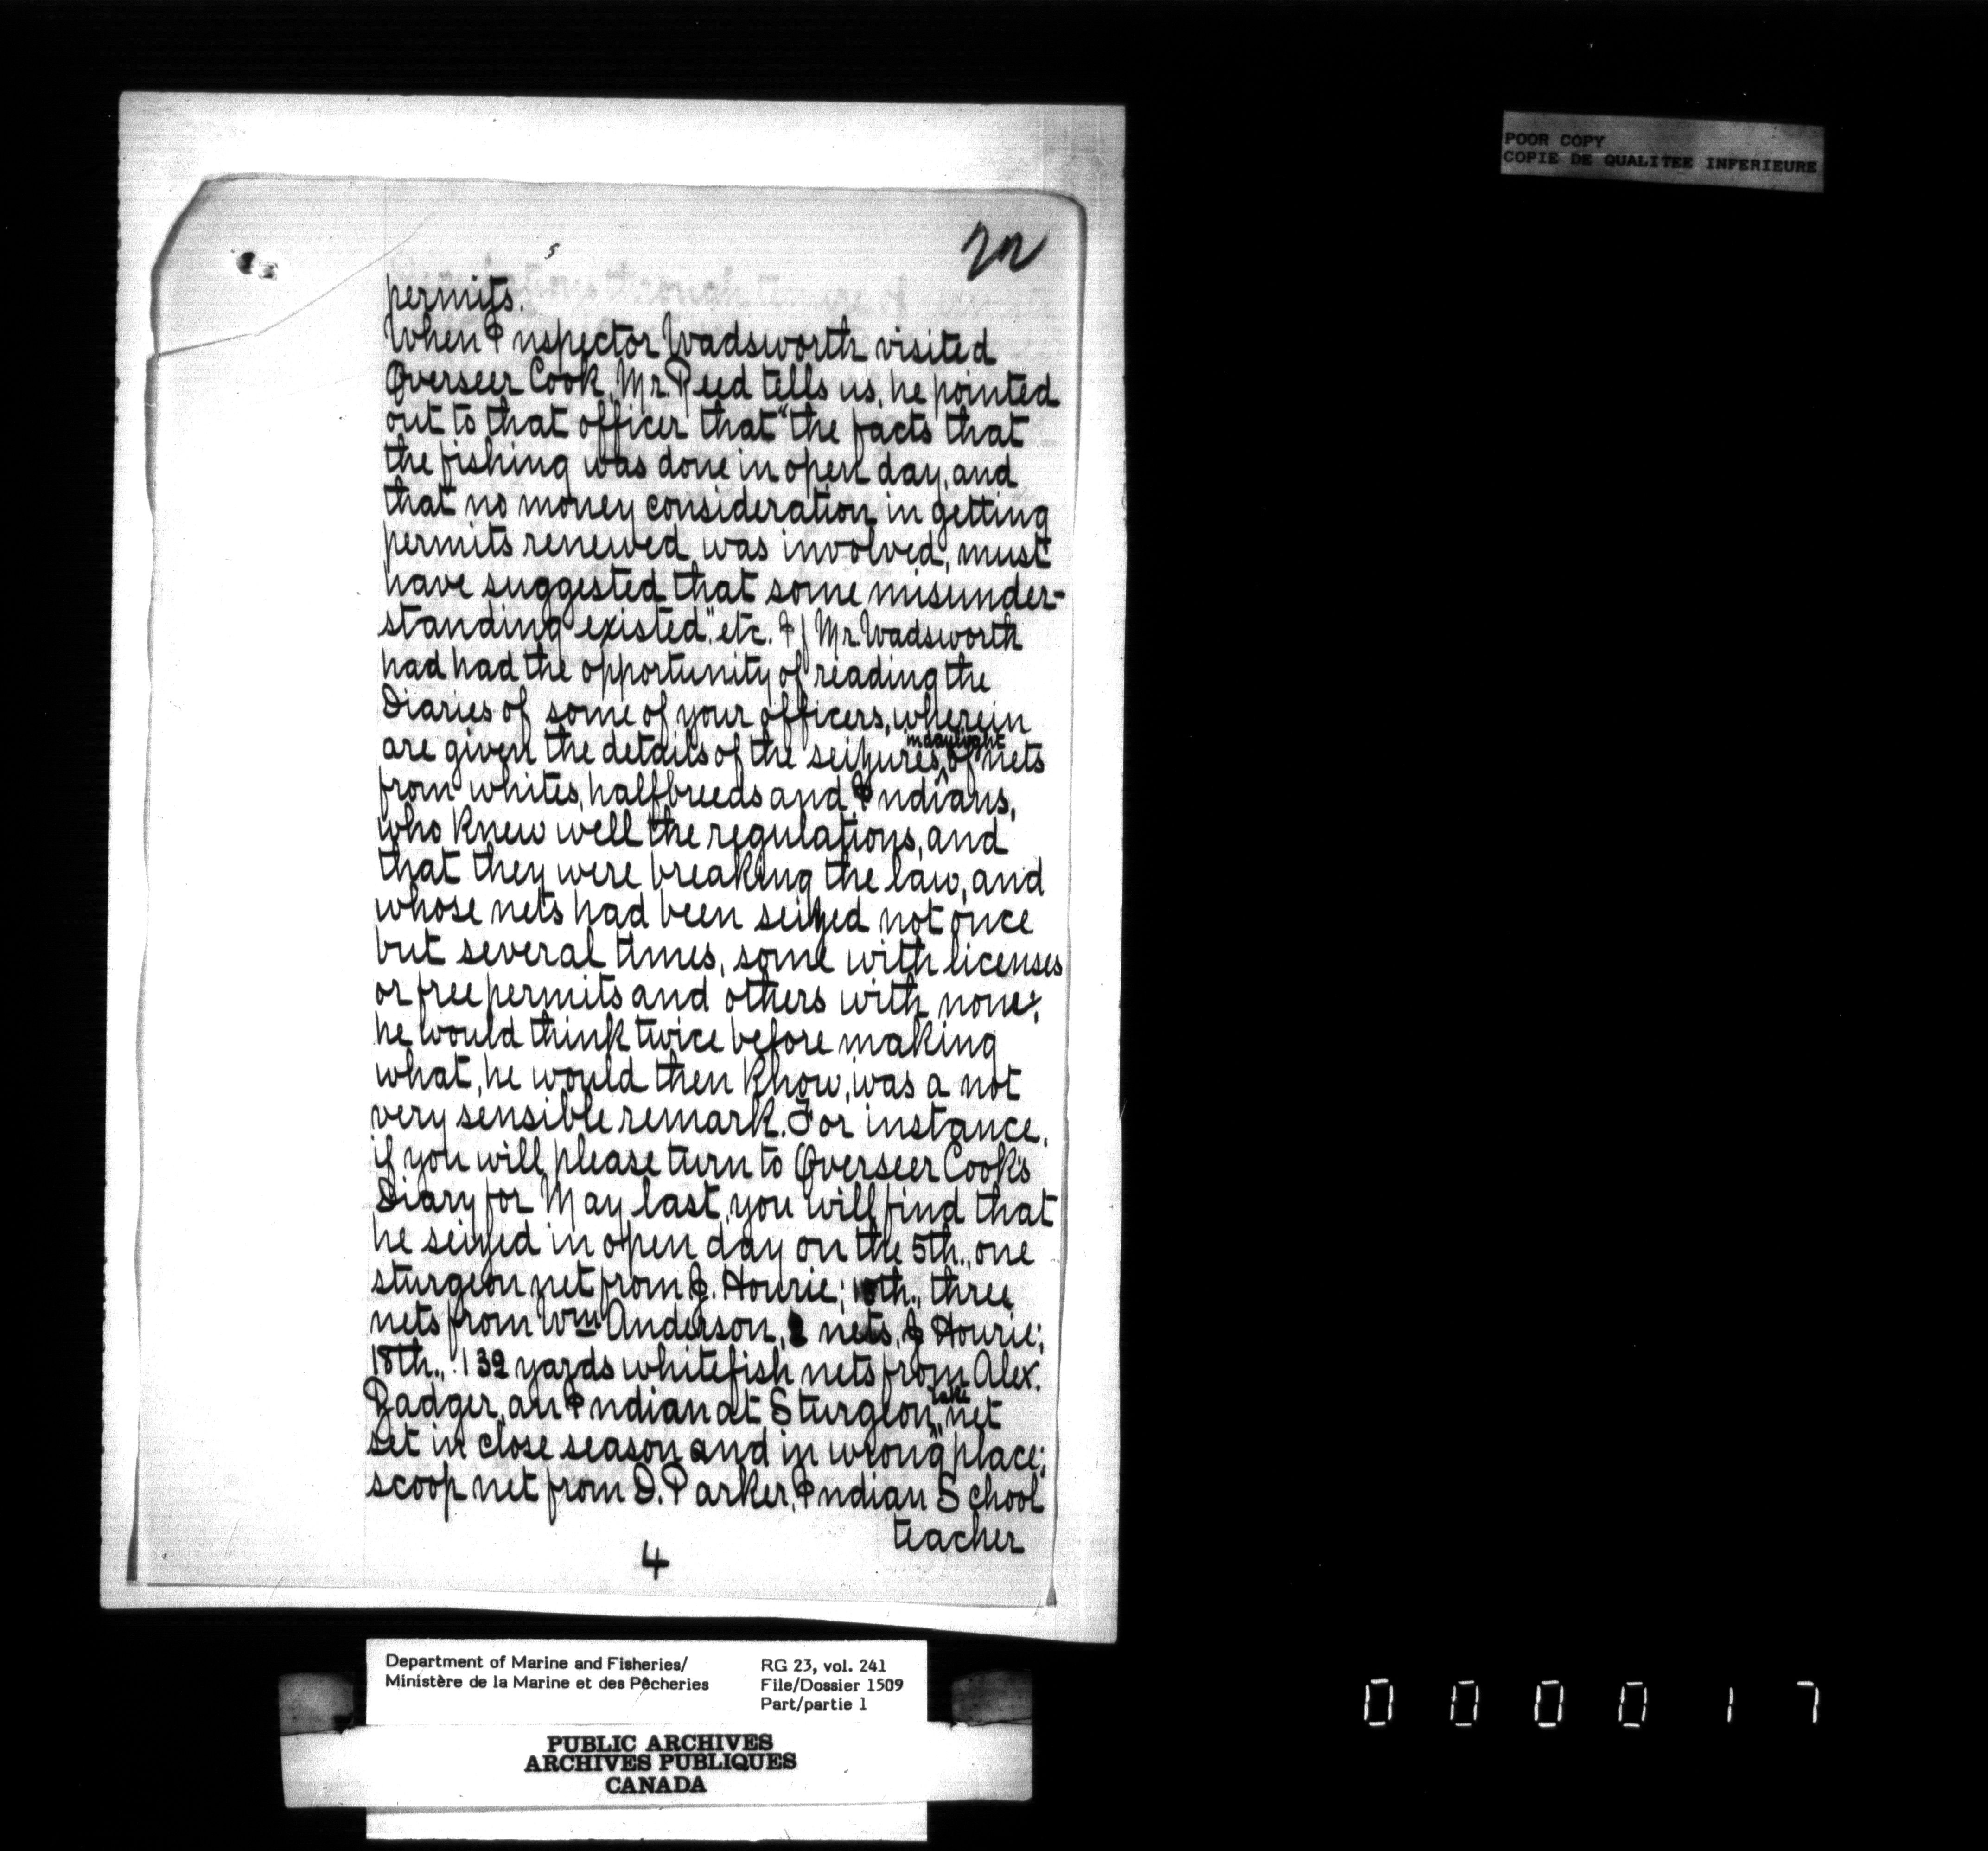 POOR COPY
COPIE DE QUALITEE INFERIEURE
22
5
permits.
When Inspector Wadsworth visited
Overseer Cook, Mr. Reed tells us, he pointed
out to that officer that "the facts that
the fishing was done in open day, and
that no money consideration in getting
permits renewed was involved, must
have suggested that some misunder-
standing existed." etc. If Mr Wadsworth
had had the opportunity of reading the
Diaries of some of your officers, wherein
are given the details of the seizures, of nets
from whites, halfbreeds and Indians,
who knew well the regulations, and
that they were breaking the law, and
whose nets had been seized not once
but several times, some with licenses
or free permits and others with none;
he would think twice before making
what, he would then know, was a not
very sensible remark. For instance,
if you will please turn to Overseer Cook's
Diary for May last, you will find that
he seized in open day on the 5th., one
sturgeon net from J. Hourie; th., three
nets from Wm Anderson, nets, J Hourie;
18th., 139 yards whitefish nets from Alex.
Badger, an Indian at Sturgeon lake net
set in close season and in wrong place;
scoop net from D. Parker, Indian School
teacher
4
Department of Marine and Fisheries/
Ministère de la Marine et des Pêcheries
RG 23, vol. 241
File/Dossier 1509
Part/partie 1
PUBLIC ARCHIVES
ARCHIVES PUBLIQUES
CANADA
000017